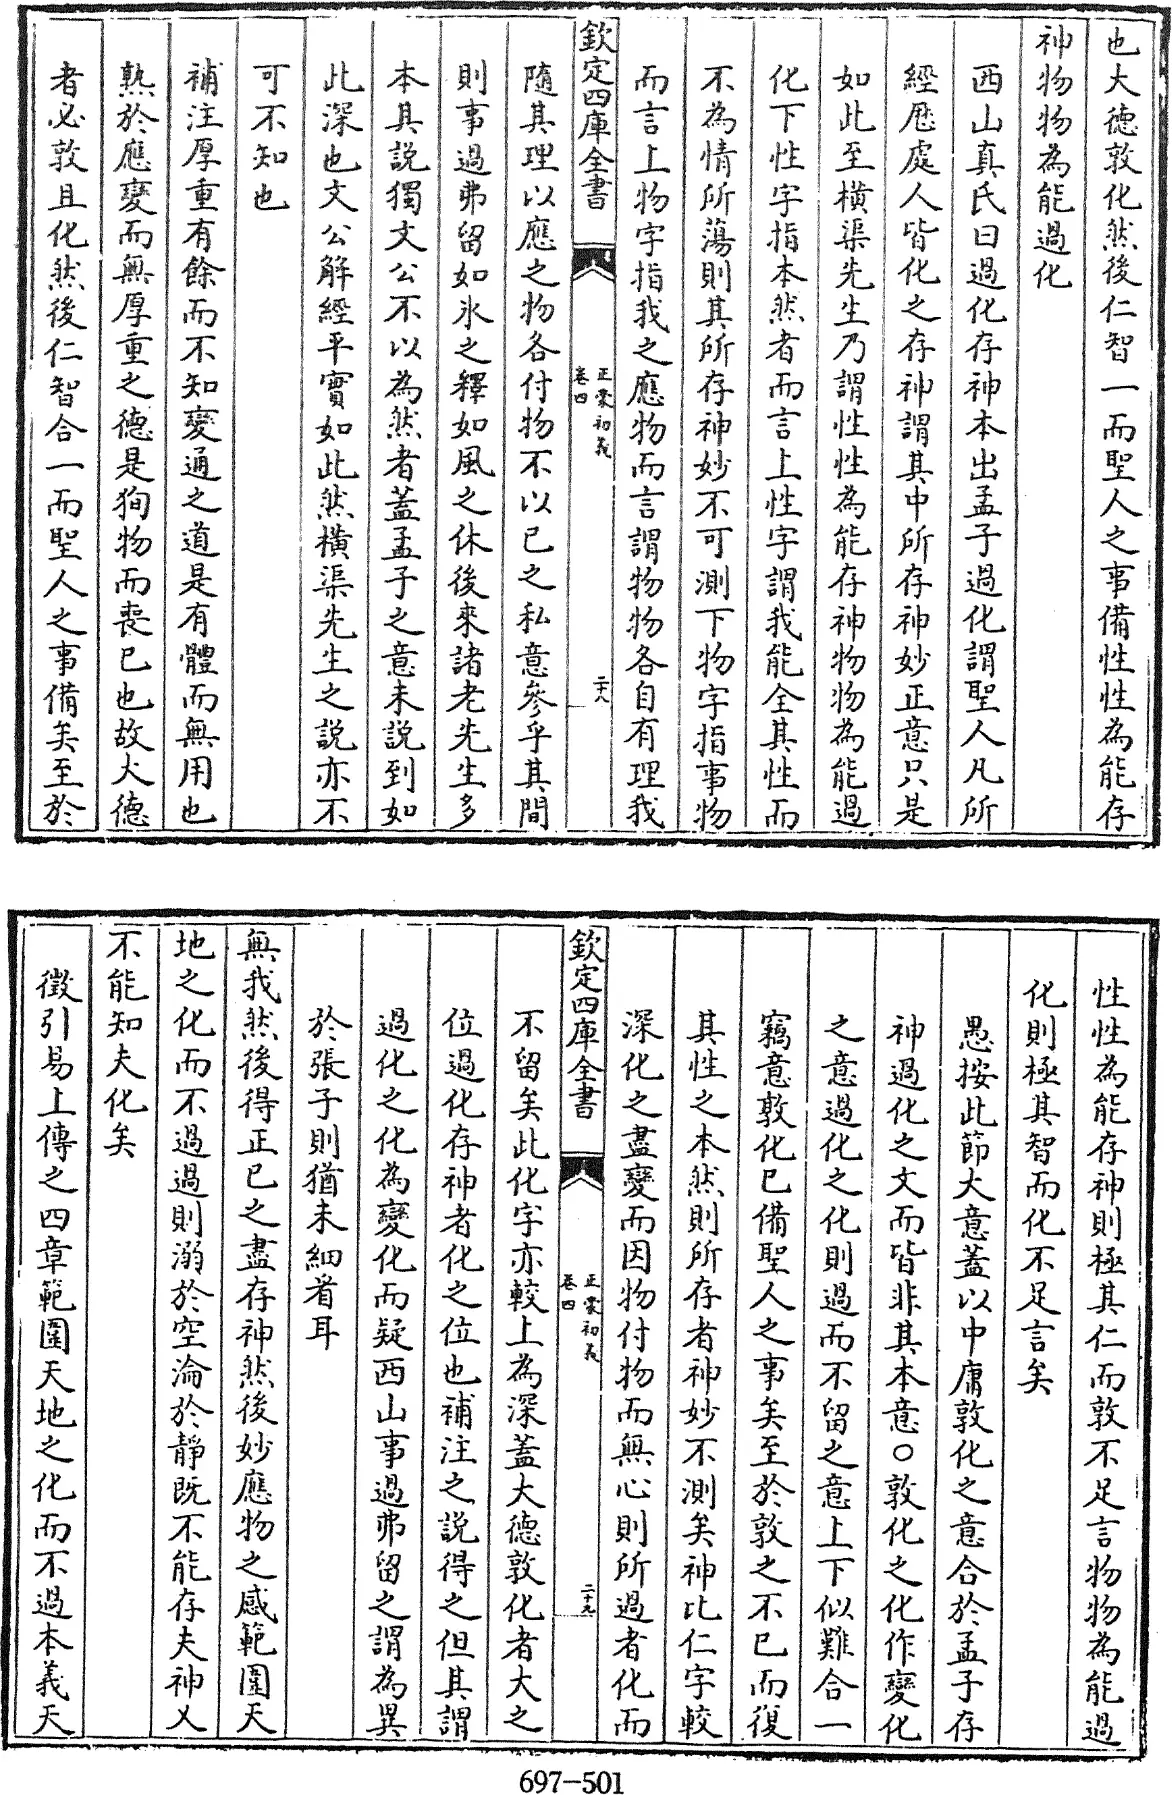 也大德敦化然後仁智一而聖人之事備性性為能存
神物物為能過化
西山真氏曰過化存神本出孟子過化謂聖人凡所
經歴處人皆化之存神謂其中所存神妙正意只是
如此至横渠先生乃謂性性為能存神物物為能過
化下性字指本然者而言上性字謂我能全其性而
不為情所蕩則其所存神妙不可測下物字指事物
而言上物字指我之應物而言謂物物各自有理我
欽定四庫全書
正蒙初義
卷四
二十八
隨其理以應之物各付物不以已之私意參乎其間
則事過弗留如氷之釋如風之休後來諸老先生多
本其説獨文公不以為然者蓋孟子之意未説到如
此深也文公解經平實如此然横渠先生之説亦不
可不知也
補注厚重有餘而不知變通之道是有體而無用也
熟於應變而無厚重之德是狥物而喪已也故大德
者必敦且化然後仁智合一而聖人之事備矣至於
性性為能存神則極其仁而敦不足言物物為能過
化則極其智而化不足言矣
愚按此節大意蓋以中庸敦化之意合於孟子存
神過化之文而皆非其本意○敦化之化作變化
之意過化之化則過而不留之意上下似難合一
竊意敦化已備聖人之事矣至於敦之不已而復
其性之本然則所存者神妙不測矣神比仁字較
深化之盡變而因物付物而無心則所過者化而
欽定四庫全書
正蒙初義
卷四
二十九
不留矣此化字亦較上為深蓋大德敦化者大之
位過化存神者化之位也補注之說得之但其謂
過化之化為變化而疑西山事過弗留之謂為異
於張子則猶未細省耳
無我然後得正已之盡存神然後妙應物之感範圍天
地之化而不過過則溺於空淪於靜既不能存夫神又
不能知夫化矣
徵引易上傳之四章範圍天地之化而不過本義天
697-501